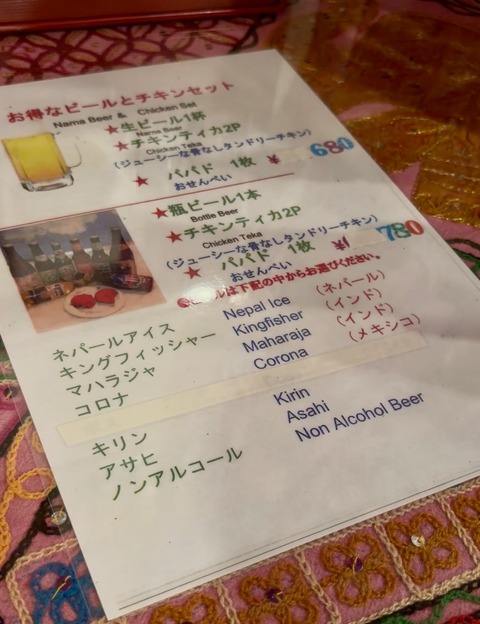 お得なビールとチキンセット
Nama Beer & Chicken Set
★生ビール1杯
Nama Beer
★チキンティカ2P
Chicken Teka
(ジューシーな骨なしタンドリーチキン)
★ パパド 1枚 ¥ 680
おせんべい
★瓶ビール1本
Bottle Beer
★チキンティカ2P
Chicken Teka
(ジューシーな骨なしタンドリーチキン)
★ パパド 1枚 ¥ 780
おせんべい
ールは下記の中からお選びください。
ネパールアイス Nepal Ice (ネパール)
キングフィッシャー Kingfisher (インド)
マハラジャ Maharaja (インド)
コロナ Corona (メキシコ)
キリン Kirin
アサヒ Asahi
ノンアルコール Non Alcohol Beer